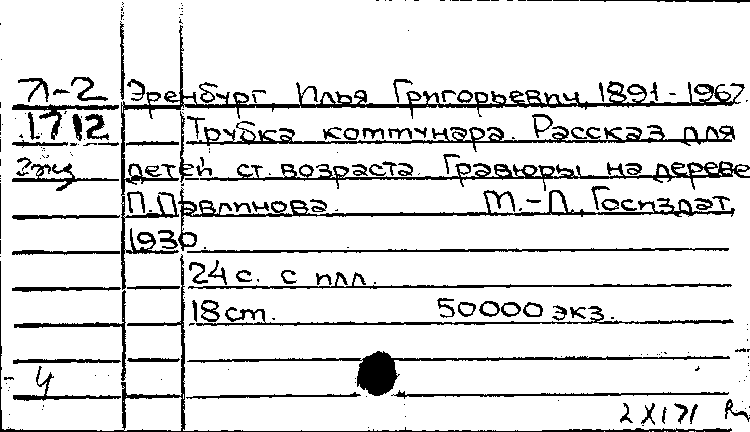 Л-2 Эренбург, Илья Григорьевич, 1891-1967.
1712 Трубка коммунара. Рассказ для
2 экз детей ст. возраста Гравюры на дереве
П. Павлинова. М.-Л., Госиздат,
1930.
24 с. с илл.
18 cm. 50000 экз.
Ч
2 XI 71